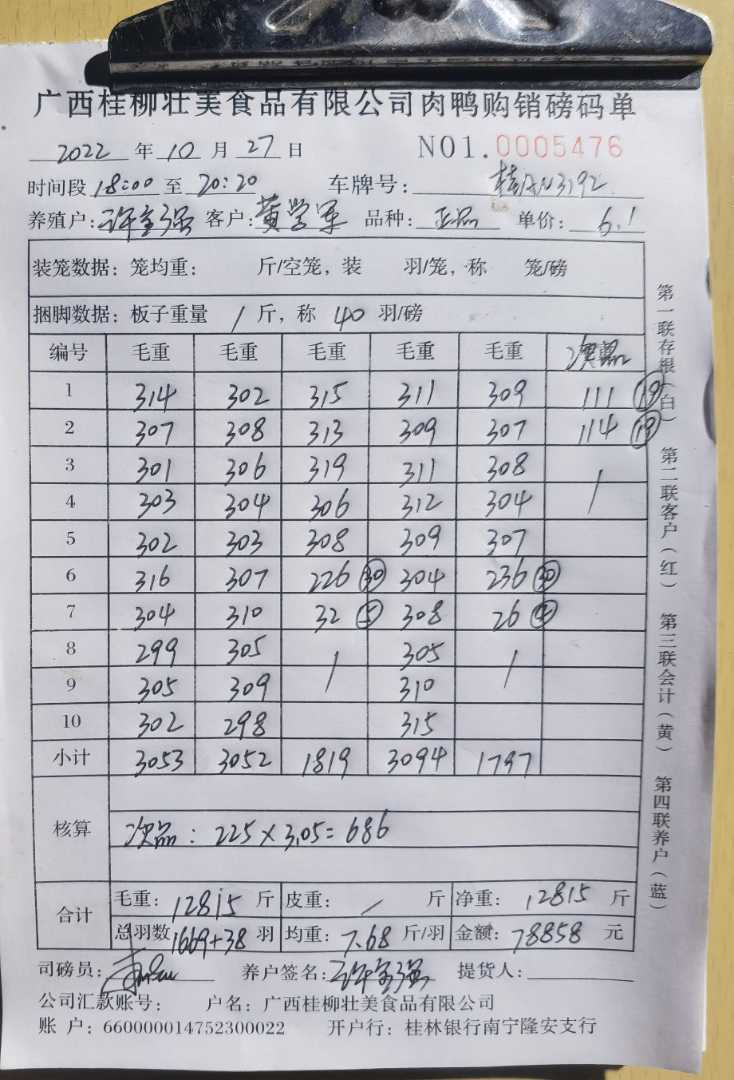 广西桂柳壮美食品有限公司肉鸭购销磅码单
2022 年 10 月 27 日 NO1.0005476
时间段 18:00 至 20:20 车牌号:
养殖户: 许金强 客户: 黄学军 品种: 正品 单价: 6.1
装笼数据: 笼均重: 斤/空笼, 装 羽/笼, 称 笼/磅
捆脚数据: 板子重量 1 斤, 称 40 羽/磅
编号 毛重 毛重 毛重 毛重 毛重 次品
1 314 302 315 311 309 111 (19)
2 307 308 313 309 307 114 (19)
3 301 306 319 311 308 /
4 303 304 306 312 304
5 302 303 308 309 307
6 316 307 226 (30) 304 236 (30)
7 304 310 32 308 26
8 299 305 / 305 /
9 305 309 310
10 302 298 315
小计 3053 3052 1819 3094 1797
核算 次品: 225×3.05=686
合计 毛重: 12815 斤 皮重: / 斤 净重: 12815 斤
总羽数 1669+38 羽 均重: 7.68 斤/羽 金额: 78858 元
司磅员: 养户签名: 许金强 提货人:
公司汇款账号: 户名: 广西桂柳壮美食品有限公司
账 户: 660000014752300022 开户行: 桂林银行南宁隆安支行
第一联存根(白) 第二联客户(红) 第三联会计(黄) 第四联养户(蓝)